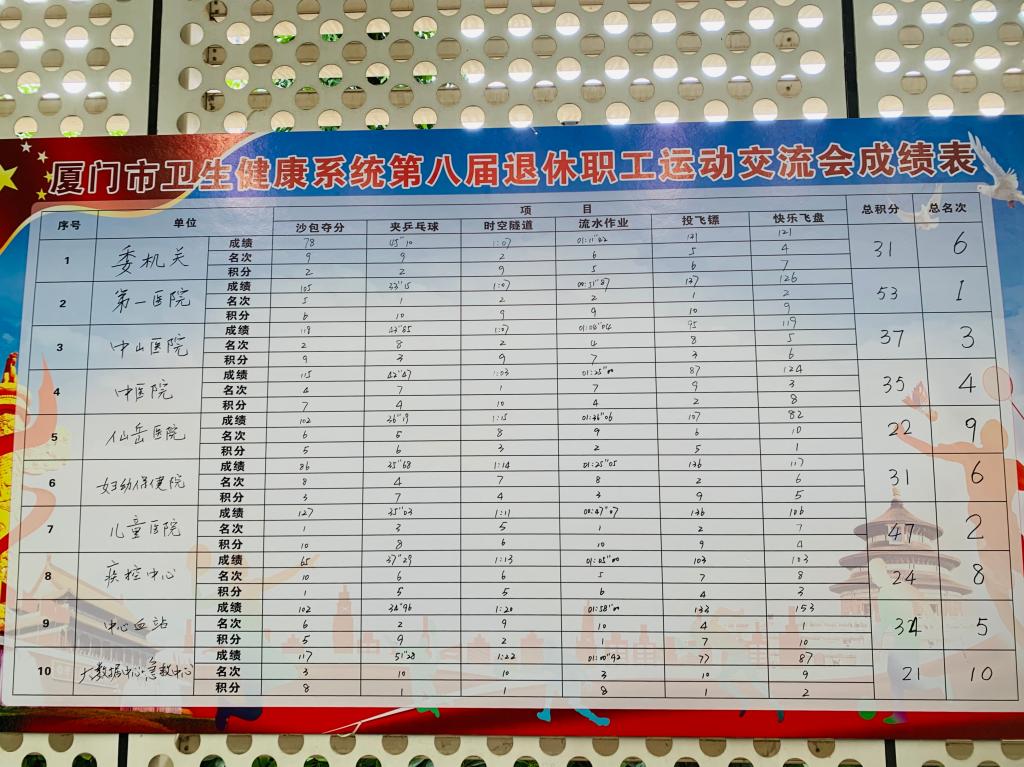 厦门市卫生健康系统第八届退休职工运动交流会成绩表
序号 单位 项 目 总积分 总名次
沙包夺分 夹乒乓球 时空隧道 流水作业 投飞镖 快乐飞盘
1 委机关 成绩 78 45"10 1:07 01:11"42 121 121 31 6
名次 9 9 2 6 5 4
积分 2 2 9 5 6 7
2 第一医院 成绩 105 33"15 1:07 00:51"87 137 126 53 1
名次 5 1 2 2 1 2
积分 6 10 9 9 10 9
3 中山医院 成绩 118 43"65 1:07 01:04"04 95 119 37 3
名次 2 8 2 4 8 5
积分 9 3 9 7 3 6
4 中医院 成绩 115 42"47 1:03 01:25"00 87 124 35 4
名次 4 7 1 7 9 3
积分 7 4 10 4 2 8
5 仙岳医院 成绩 102 36"19 1:15 01:36"06 107 82 22 9
名次 6 5 8 9 6 10
积分 5 6 3 2 5 1
6 妇幼保健院 成绩 86 35"68 1:14 01:25"05 136 117 31 6
名次 8 4 7 8 2 6
积分 3 7 4 3 9 5
7 儿童医院 成绩 127 35"03 1:11 00:47"07 136 106 47 2
名次 1 3 5 1 2 7
积分 10 8 6 10 9 4
8 疾控中心 成绩 65 37"29 1:13 01:05"00 103 103 24 8
名次 10 6 6 5 7 8
积分 1 5 5 6 4 3
9 中心血站 成绩 102 34"96 1:20 01:58"00 133 153 34 5
名次 6 2 9 10 4 1
积分 5 9 2 1 7 10
10 大数据中心·急救中心 成绩 117 51"28 1:22 01:00"92 77 87 21 10
名次 3 10 10 3 10 9
积分 8 1 1 8 1 2